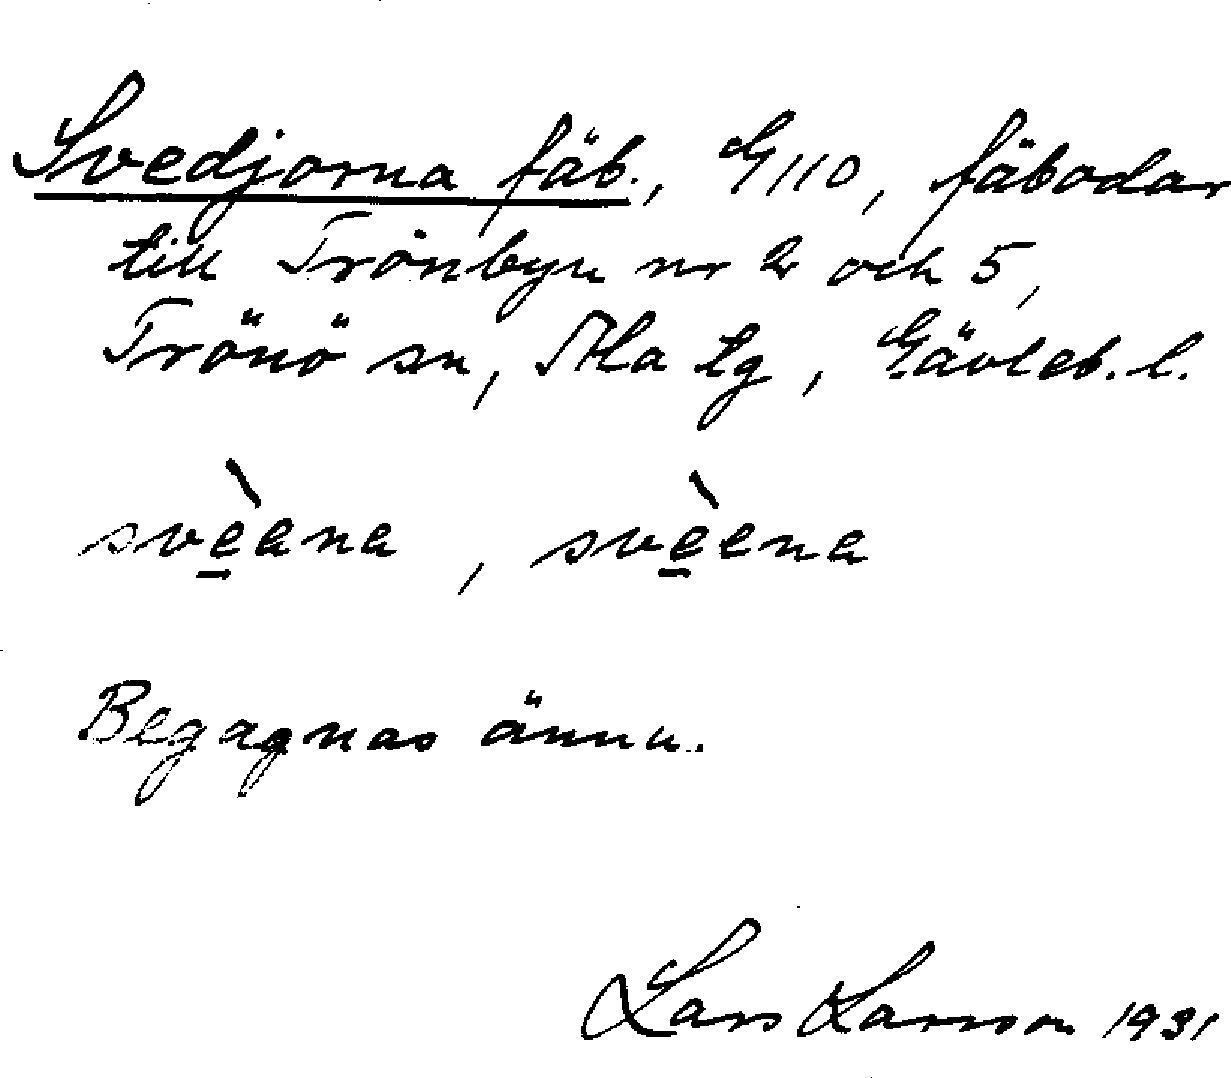 Svedjorna fäb., G110, fäbodar
till Trönbyn nr 2 och 5,
Trönö sn, Ala tg, Gävleb. l.
svè̲ana, svè̲ena
Begagnas ännu.
Lars Larsson 1931